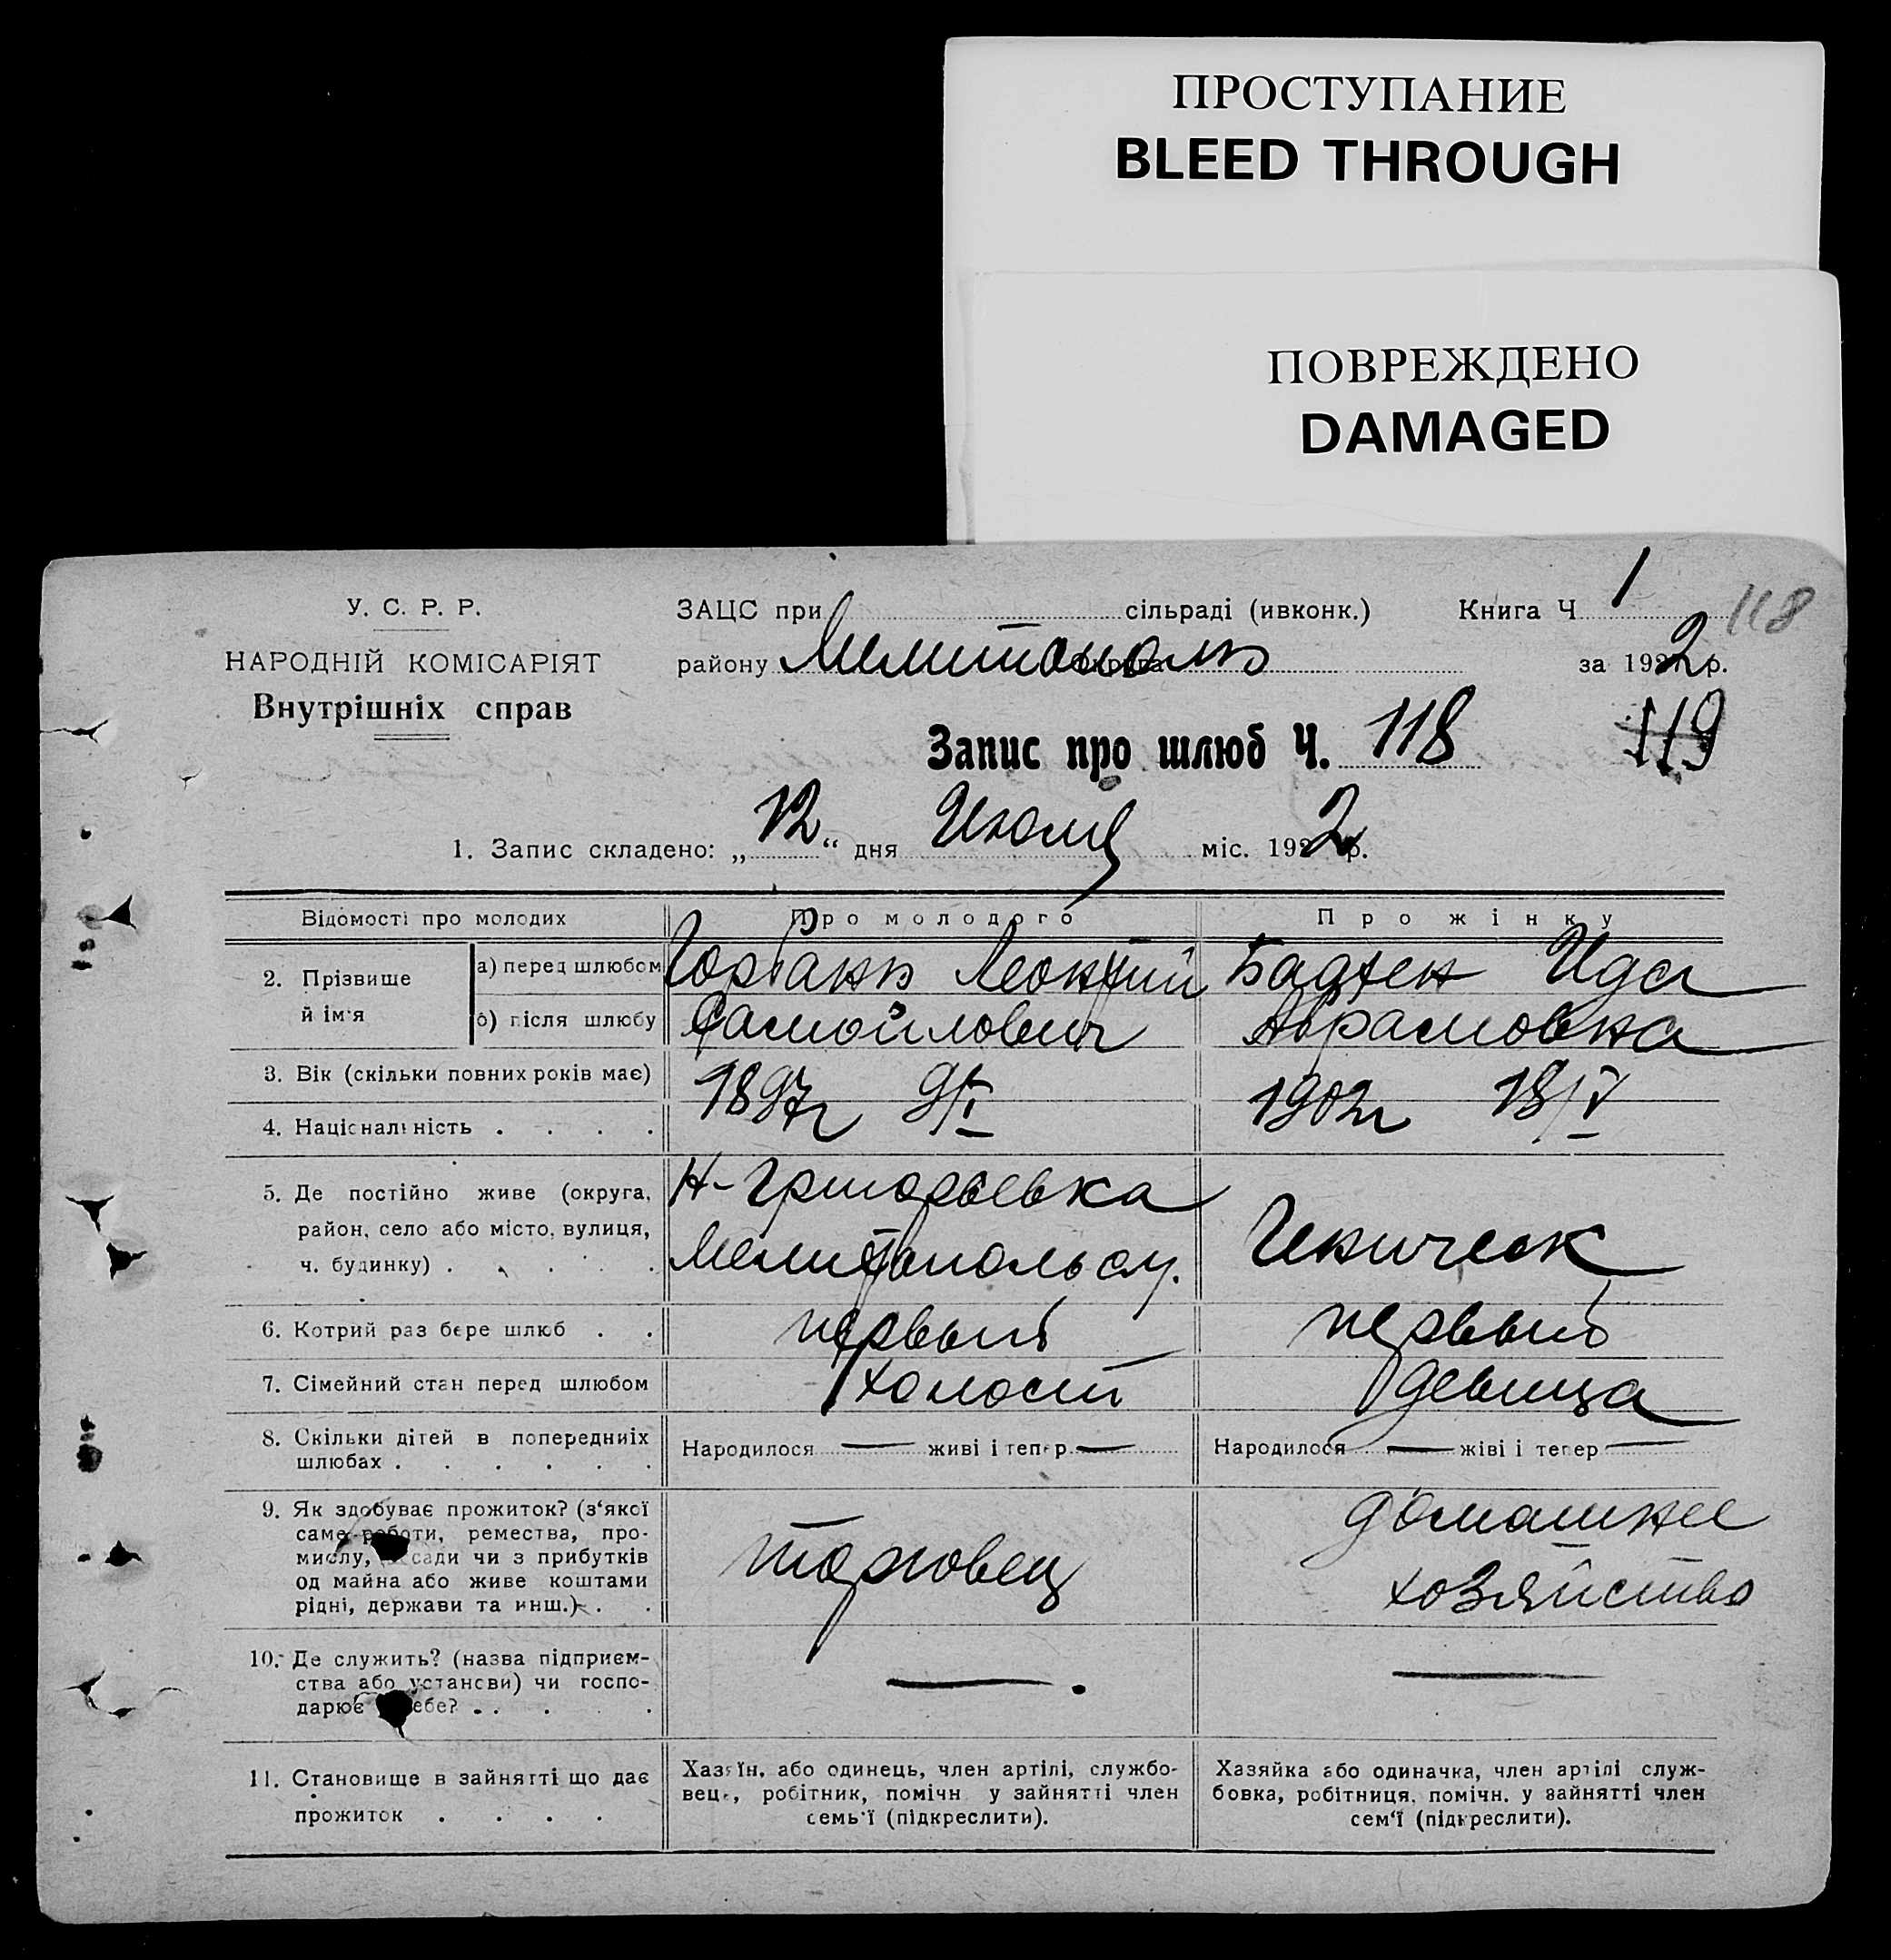 ПРОСТУПАНИЕ
BLEED THROUGH
ПОВРЕЖДЕНО
DAMAGED
У. С. Р. Р.
НАРОДНІЙ КОМІСАРІЯТ
Внутрішніх справ
ЗАЦС при сільраді (ивконк.) Книга Ч 1 118
району Мелитополь за 1922 р.
Запис про шлюб Ч. 118 119
1. Запис складено: „12“ дня Июля міс. 1922 р.
Відомості про молодих Про молодого Про жінку
2. Прізвище й ім'я
а) перед шлюбом Леонтий Ида
б) після шлюбу Самойлович Абрамовна
3. Вік (скільки повних років має) 1897 г 9/I 1902 г 18/IV
4. Національність . . . .
5. Де постійно живе (округа, Н-Григорьевка
район, село або місто, вулиця, Геническ
ч. будинку) . . . . . Мелитопольск у.
6. Котрий раз бере шлюб . . первый первый
7. Сімейний стан перед шлюбом холост девица
8. Скільки дітей в попередниіх Народилося — живі і тепер — Народилося — жіві і тепер —
шлюбах . . . . . .
9. Як здобуває прожиток? (з'якої домашнее
саме роботи, ремества, про-
мислу, сади чи з прибутків торговец
од майна або живе коштами хозяйство
рідні, держави та инш.) . .
10. Де служить? (назва підприєм-
ства або установи) чи госпо- — —
дарює ебе? . . . .
11. Становище в зайнятті що дає
прожиток . . . .
Хазяїн, або одинець, член артілі, службо-
вець, робітник, помічн у зайнятті член
семь'ї (підкреслити).
Хазяйка або одиначка, член артілі служ-
бовка, робітниця, помічн. у зайнятті член
сем'ї (підкреслити).